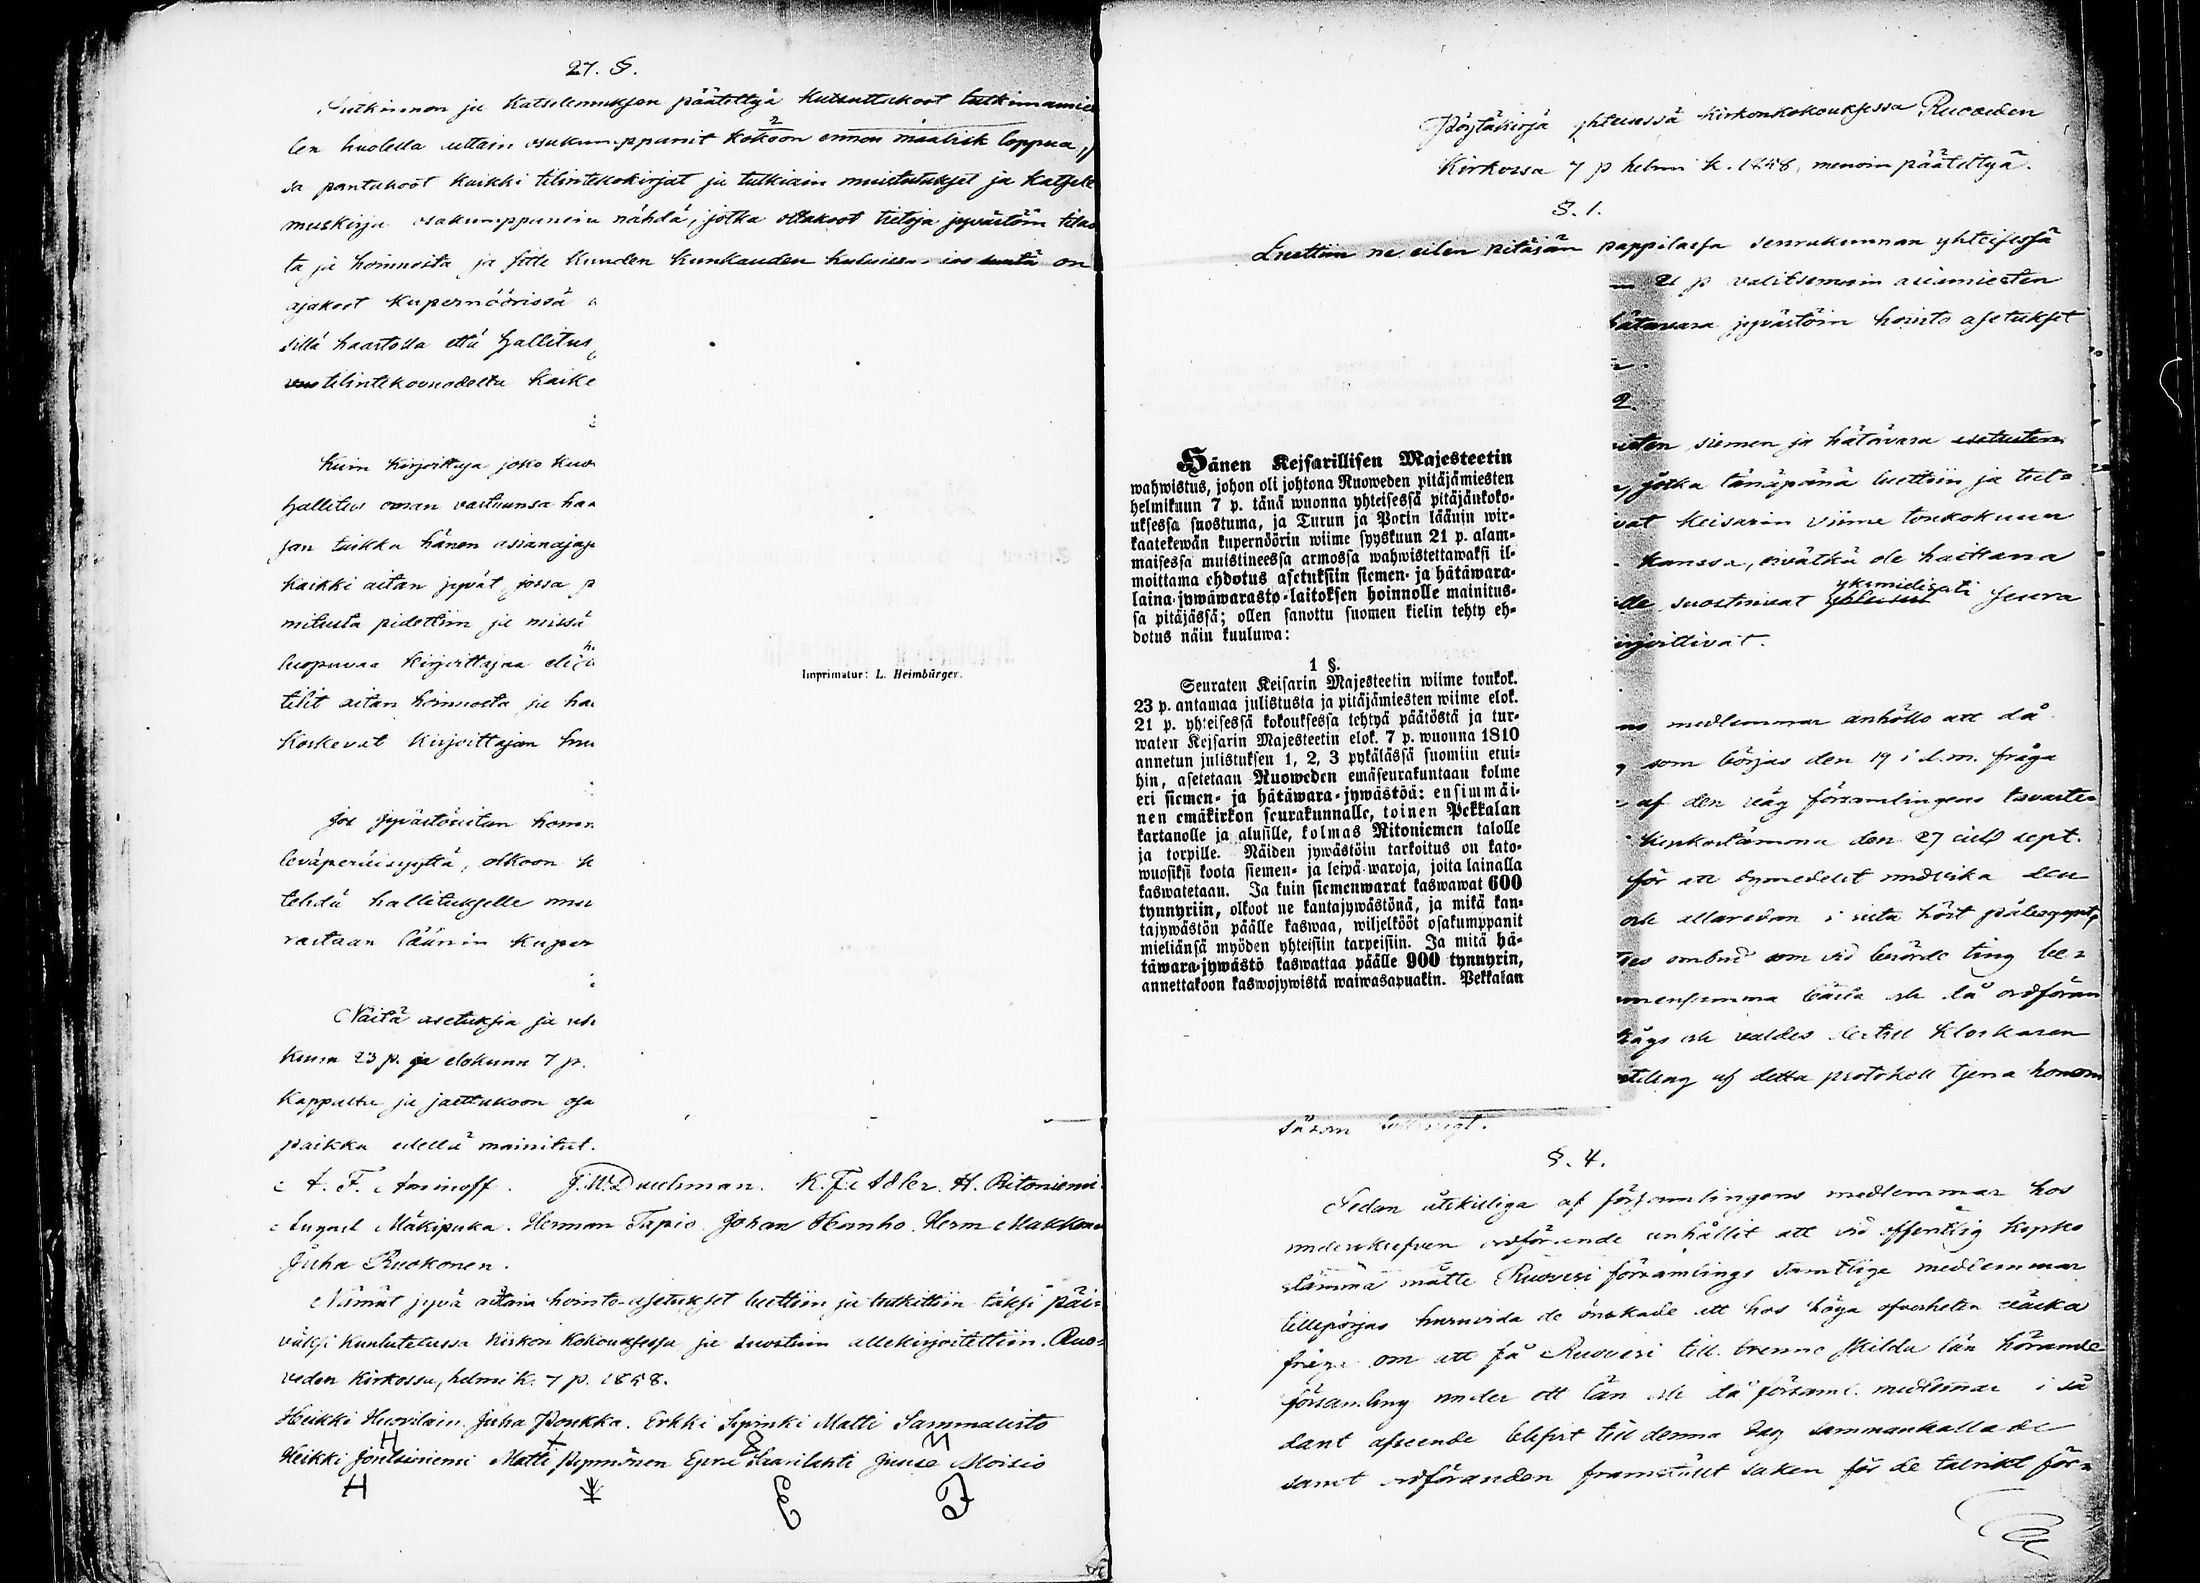 27. §.
Tutkinnon ja Katselemuksen päätettyä kutsuttakoot tutkinnamie
len huolella aittain osakumppanit kokoon ennen maalisk loppua, j
sa pantakoot kaikki tilintekokirjat ja tutkiain muistutukset ja Katsele
muskirja osakumppanein nähdä, jotka ottakoot tietoja jyvästöin tilas
ta ja hoinnosta ja sitte kuuden kuukauden kuluissa jos
on
ajakoot kupernöörissä
sillä haastolla että hallitus
tilintekovuodelta kaike
kuin kirjoittaja joko kuo
hallitus oman vastuunsa haa
jan taikka hänen asianajaja
kaikki aitan jyvät, jossa p
mitasta pidettiin ja missä
luopuvaa kirjoittajaa eli
tilit aitan hoinnosta ja ha
koskevat kirjoittajan
Jos jyvästöaitan hoin
leväperäisyyttä, olkoon
tehdä hallitukselle muu
rastaan läänin kuper
Näitä asetuksia ja
kuun 23 p. ja elokuun 7 p.
kappaltta ja jaettakoon osa
paikka edellä mainitut.
A. F. Aminoff. J. W. Duchman. K. F. Adler. H. Ritoniemi.
August Mäkipuka. Herman Tapio. Johan Hanho. Herm Makkone
Juha Ruokonen.
Nämät jyvä aittain hointo-asetukset luettiin ja tutkittiin täksi päi=
väksi kuulutetussa kirkon kokouksessa ja suostuin allekirjoitettiin. Ruo=
veden kirkossa, helmi k. 7 p. 1858.
Heikki Huovilain. Juha Poukka. Erkki Sipinki Matti Sammalisto
Heikki Joutsiniemi Matti Pynnönen Eera Haarilahti Juuse Moisio
H E
Imprimatur: L. Heimbürger.
Pöytäkirja yhteisessä kirkonkokouksessa Ruoveden
Kirkossa 7 p helmi k. 1858, menoin päätettyä.
§. 1.
Luettiin ne eilen pitäjän pappilassa seurakunnan yhteisessä
21 p valitsemain asiamiesten
hätavara jyvästöin hointo asetukset
2.
siemen ja hätävara
jotka tänäpänä luettiin ja tut=
vat Keisarin viime toukokuun
kanssa, eivätkä ole haittana
de suostuivat yksimielisesti seura
irjoittivat.
medlemmar anhöllo att då
som börjas den 19 i d. m. fråga
af den väg församlingens tavaste=
kyrkostämma den 27 sidl sept.
för att
och
ombud som vid lärörde ting be=
summa bäcka och då ordföran
valdes dertill klockaren
af detta protokoll tjena honom
såsom
§. 4.
Sedan åtskilliga af församlingens medlemmar hos
undeskrefven ordförende anhållit att vid offentlig kyrko
stämma måtte Ruovesi församlings samtlige medlemmar
tillspörjas huruvida de önskade att hos höga öfverheten väcka
fråga om att få Ruovesi till trenne skilda län hörande
församling under ett län och då församl. medlemmar i så
dant afseende blifvit till denna dag sammankallade
samt ordföranden framstält saken för de talrikt för=
Hänen Keisarillisen Majesteetin
wahwistus, johon oli johtona Ruoweden pitäjämiesten
helmikuun 7 p. tänä wuonna yhteisessä pitäjänkoko-
uksessa suostuma, ja Turun ja Porin läänin wir-
kaatekewän kupernöörin wiime syyskuun 21 p. alam-
maisessa muistineessa armossa wahwistettawaksi il-
moittama ehdotus asetuksiin siemen- ja hätäwara-
laina-jywäwarasto-laitoksen hoinnolle mainitus-
sa pitäjässä; ollen sanottu suomen kielin tehty eh-
dotus näin kuuluwa:
1 §.
Seuraten Keisarin Majesteetin wiime toukok.
23 p. antamaa julistusta ja pitäjämiesten wiime elok.
21 p. yhteisessä kokouksessa tehtyä päätöstä ja tur-
waten Keisarin Majesteetin elok. 7 p. wuonna 1810
annetun julistuksen 1, 2, 3 pykälässä suomiin etui-
hin, asetetaan Ruoweden emäseurakuntaan kolme
eri siemen- ja hätäwara-jywästöä: ensimmäi-
nen emäkirkon seurakunnalle, toinen Pekkalan
kartanolle ja alusille, kolmas Ritoniemen talolle
ja torpille. Näiden jywästöin tarkoitus on kato-
wuosiksi koota siemen- ja leipä-waroja, joita lainalla
kaswatetaan. Ja kuin siemenwarat kaswawat 600
tynnyriin, olkoot ne kantajywästönä, ja mikä kan-
tajywästön päälle kaswaa, wiljelkööt osakumppanit
mieliänsä myöden yhteisiin tarpeisiin. Ja mitä hä-
täwara-jywästö kaswattaa päälle 900 tynnyrin,
annettakoon kaswojywistä waiwasapuakin. Pekkalan